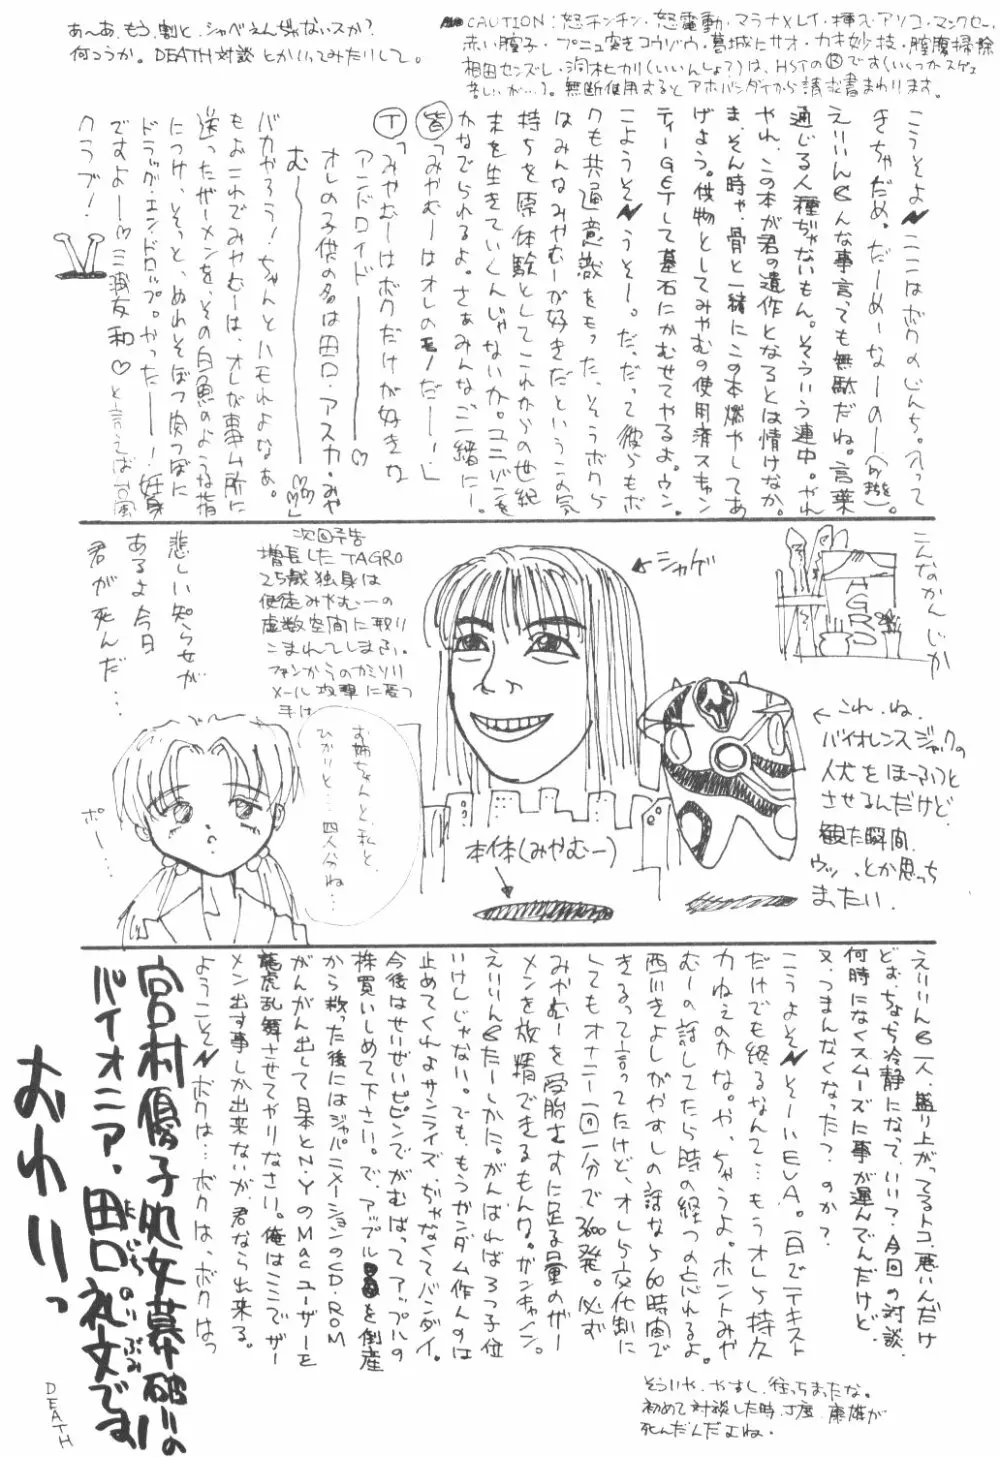 あ〜あ、もう、割と、シャべえんぢゃないスか?
何つうか。DEATH対談とかいってみたりして。
こうそよ
きちゃだめ。だーめーなーのー
通じる人種ぢゃないもん。そういう連中。やれ
やれ、この本が君の遺作となるとは情けなか。
ま、そん時ゃ、骨と一緒にこの本燃やしてあ
げよう。供物としてみやむの使用済スキャン
ティーGETして墓石にかむせてやるよ。ウン。
こようそ うそー。だ、だって彼らもボ
クも共通意識をもった、そうボクら
はみんなみやむーが好きだというこの気
持ちを原体験としてこれからの世紀
末を生きていくんじゃないか。ユニバンを
かなでられるよ。さぁみんなご一緒にー!
皆「みやむーはオレのモノだーー!」
T「みやむーはボクだけが好きな
アンドロイドーーー♡
オレの子供の名は田口・アスカ・みや
むーーーー♡♡♡」
バカやろう!ちゃんとハモれよなぁ。
もぉこれでみやむーは、オレが事ム所に
送ったザーメンを、その白魚のような指
につけ、そっと、ぬれそぼつ肉つぼに
ドラッグ・エンドロップ。やったーー!妊娠
ですよーー♡三浦友和♡と言えば台風
クラブ!
こんなかんじか
TAGRO
←シャゲ
次回予告
増長したTAGRO
25歳独身は
使徒みやむーの
虚数空間に取り
こまれてしまふ。
ファンからのカミソリ
メール攻撃に憂つ
手は
悲しい知らせが
あるよ今日
君が死んだ…
お姉ちゃんと、私と、
ひかりと…四人分ね…
ポー…
本体(みやむー)
←これ、ね、
バイオレンスジャックの
人犬をほーふつと
させるんだけど、
観た瞬間、
ウッ…、とか思っち
まったい。
どぉ、ちなら冷静になって、いい?、今回の対談、
何時になくスムーズに事が運んでんだけど、
又、つまんなくなった?のか?
こうよそ そーいEVA。一日でテキスト
だけでも終るなんて…もうオレら持久
力ねぇのかな。や、ちゃうよ。ホントみや
むーの話してたら時の経つの忘れるよ。
西川きよしがやすしの話なら60時間で
きるって言ってたけど、オレら交代制に
してもオナニー一回一分で3600発。必ず
みやむーを受胎むすに足る量のザー
メンを放精できるもんね。ガンキャノン。
いけしじゃない。でも、もうガンダム作んのは
止めてくれよサンライズ、ぢゃなくてバンダイ。
今後はせいぜいピピンでがむばってアップルの
株買いしめて下さい。で、アプブルを倒産
から救った後にはジャパニメーションのCD-ROM
がんがん出して日本とN・YのMacユーザーを
龍虎乱舞させてやりなさい。俺はここでザー
メン出す事しか出来ないが、君なら出来る。
ようこそ ボクは…ボクは、ボクはっ
そういや、やすし、往っちまったな。
初めて対談した時、丁度、康雄が
死んだんだよね。
宮村優子処女幕破りの
パイオニア・田口礼文です
おわりっ
DEATH